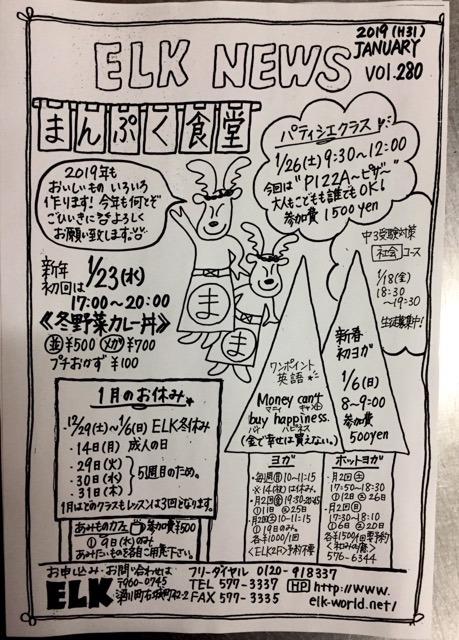 2019 (H31)
JANUARY
ELK NEWS
VOL.280
まんぷく食堂
2019年も
おいしいもの いろいろ
作ります!今年も何とぞ
ごひいきによろしく
お願い致します。
新年
初回は
1/23(水)
17:00~20:00
《冬野菜カレー丼》
並¥500 メガ¥700
プチおかず ¥100
ま
ま
パティシエクラス
1/26(土)9:30~12:00
今回は"PIZZA~ピザ~"
大人もこどもも誰でもOK!
参加費 1500yen
中3受験対策
社会コース
1/18(金)
18:30
~19:30
生徒募集中!
ワンポイント
英語
Money can't
マニィ キャント
buy happiness.
バイ ハピネス
(金で幸せは買えない。)
新春
初ヨガ
1/6(日)
8~9:00
参加費
500yen
1月のお休み
・12/29(土)~1/6(日)ELK冬休み
・14日(月) 成人の日
・29日(火)
・30日(水)
・31日(木)
5週目のため。
1月はどのクラスもレッスンは3回となります。
あみものカフェ 参加費¥500
① 9日(水)のみ
あみたいものを各自ご用意下さい。
ヨガ
・毎週(月)10~11:15
※14(祝)は休み。
・月2回(金)19:30-20:45
①11日 ②25日
・月2回(土)10~11:15
①19日のみ。
各¥1000/1回
<ELK2F>予約不要
ホットヨガ
・月2回(土)
17:50~18:30
①12日②26日
・月2回(日)
17:30~18:10
①6日②20日
各1500/1回要予約
576-6344
お申し込み・お問い合わせは
フリーダイヤル 0120-918337
ELK
〒960-0745
TEL 577-3337
FAX 577-3335
HP http://www.
elk-world.net/